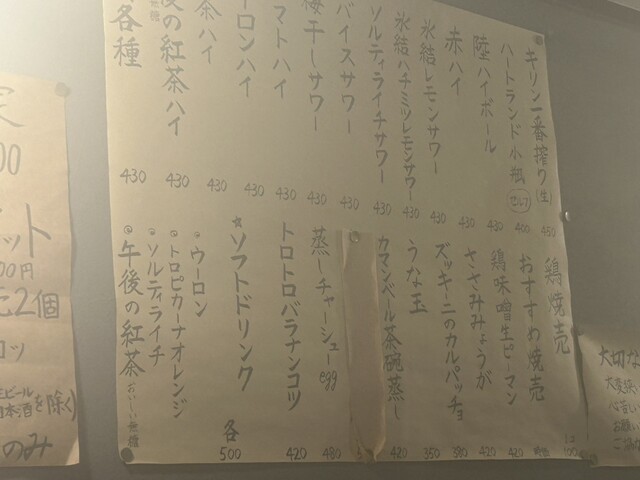 キリン一番搾り(生) 450
ハートランド小瓶 セルフ 400
陸ハイボール 430
赤ハイ 430
氷結レモンサワー 430
氷結ハチミツレモンサワー 430
ソルティライチサワー 450
バイスサワー 430
梅干しサワー 430
トマトハイ 430
ウーロンハイ 430
茶ハイ 430
後の紅茶ハイ 430
各種 430
鶏焼売 100
おすすめ焼売
鶏味噌生ピーマン 420
ささみみょうが 420
ズッキーニのカルパッチョ 380
うな玉 350
カマンベール茶碗蒸し 420
蒸しチャーシューegg 480
トロトロバラナンコツ 420
☆ソフトドリンク 各500
◎ウーロン
・トロピカーナオレンジ
・ソルティライチ
◎午後の紅茶 おいしい無糖
00
ット
00円
2個
コッ
生ビール
日本酒を除く)
のみ
大切な